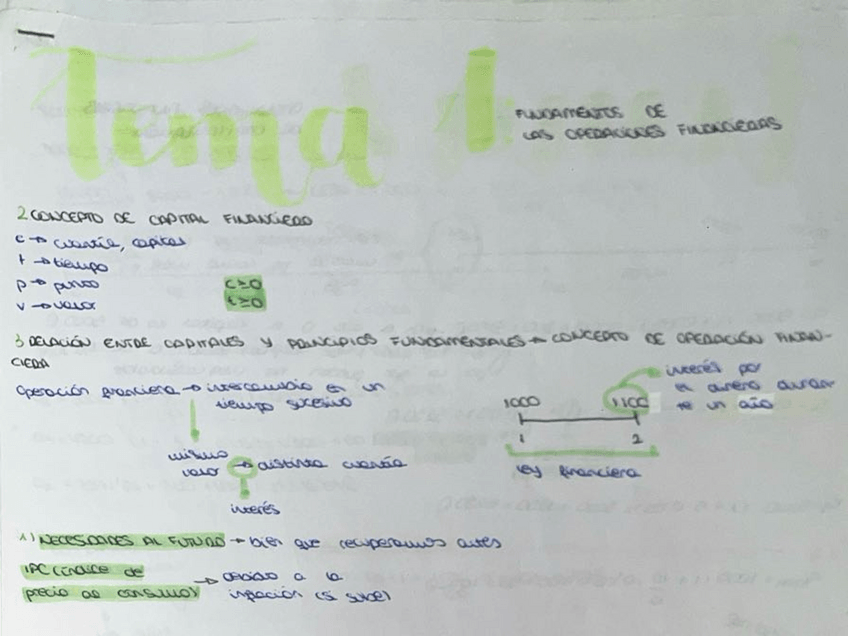 Tema 1.
FUNDAMENTOS DE
LAS OPERACIONES FINANCIERAS
2 CONCEPTO DE CAPITAL FINANCIERO
c → cuantía, capital
t → tiempo
p → punto
v → valor
C≥0
t≥0
3 RELACIÓN ENTRE CAPITALES Y PRINCIPIOS FUNDAMENTALES → CONCEPTO DE OPERACIÓN FINAN-
CIERA
Operación financiera → intercambio en un
tiempo sucesivo
mismo
valor → distinta cuantía
interés
1000 1100
1 2
Ley financiera
interés por
el dinero duran-
te un año
1) NECESIDADES AL FUTURO → bien que recuperamos antes
IPC (índice de
precio de consumo) → debido a la
inflación (si sube)